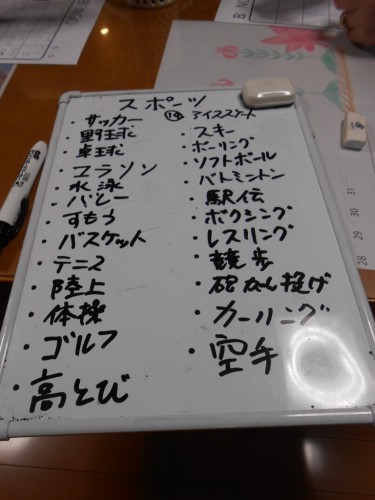 スポーツ
・サッカー
・野球
・卓球
・マラソン
・水泳
・バレー
・すもう
・バスケット
・テニス
・陸上
・体操
・ゴルフ
・高とび
⑭ アイススケート
・スキー
・ボーリング
・ソフトボール
・バトミントン
・駅伝
・ボクシング
・レスリング
・競歩
・砲丸投げ
・カーリング
・空手
31
30
29
28